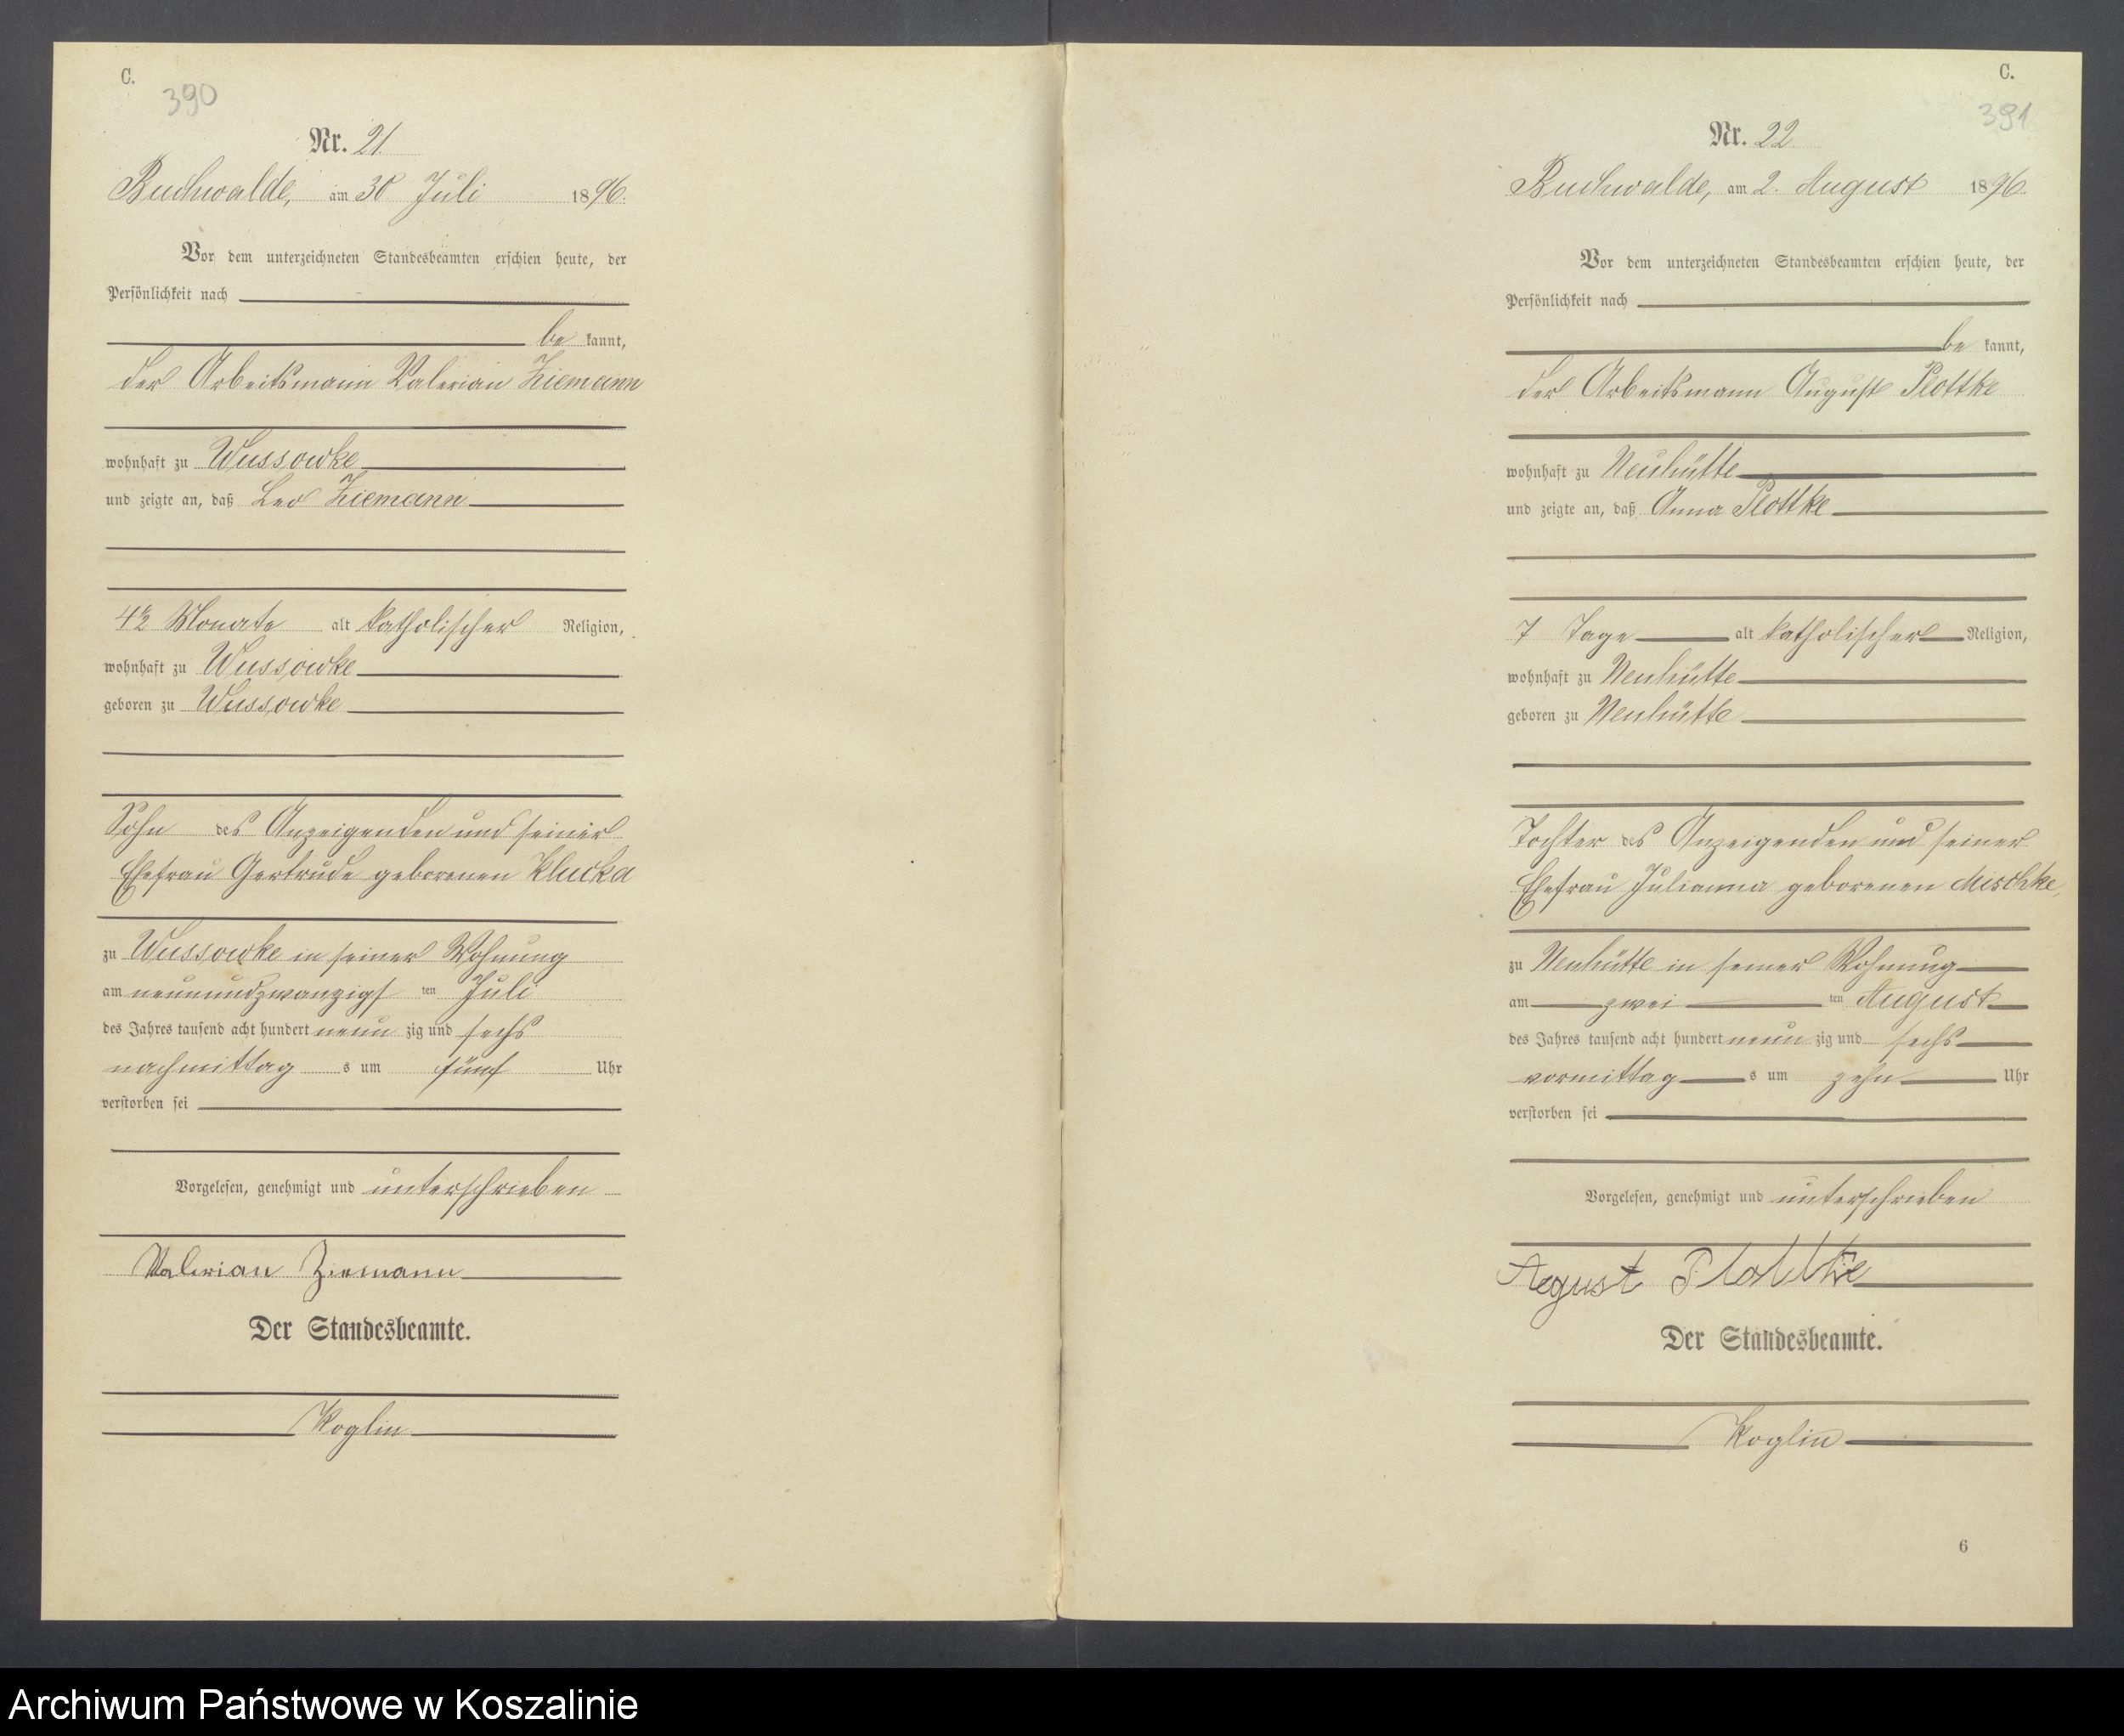 C.
390
Nr. 21.
Buchwalde, am 30 Juli 1896.
Vor dem unterzeichneten Standesbeamten erschien heute, der
Persönlichkeit nach
be kannt,
der Arbeitsmann Valerian Ziemann
wohnhaft zu Wussowke
und zeigte an, daß Leo Ziemann
Monate alt katholischer Religion,
wohnhaft zu Wussowke
geboren zu Wussowke
Sohn des Anzeigenden und seiner
Ehefrau Gertrude geborenen Klucka
zu Wussowke in seiner Wohnung
am neunundzwanzigsten Juli
des Jahres tausend acht hundert neun zig und sechs
nachmittag s um fünf Uhr
verstorben sei
Vorgelesen, genehmigt und unterschrieben
Valerian Ziemann
Der Standesbeamte.
Koglin
C.
391
Nr. 22
Buchwalde, am 2. August 1896.
Vor dem unterzeichneten Standesbeamten erschien heute, der
Persönlichkeit nach
be kannt,
der Arbeitsmann August Plottke
wohnhaft zu Neuhütte
und zeigte an, daß Anna Plottke
7 Tage alt katholischer Religion,
wohnhaft zu Neuhütte
geboren zu Neuhütte
Tochter des Anzeigenden und seiner
Ehefrau Julianna geborenen Mischke,
zu Neuhütte in seiner Wohnung
am zwei ten August
des Jahres tausend acht hundert neun zig und sechs
vormittag s um zehn Uhr
verstorben sei
Vorgelesen, genehmigt und unterschrieben
August Plottke
Der Standesbeamte.
Koglin
6
Archiwum Państwowe w Koszalinie